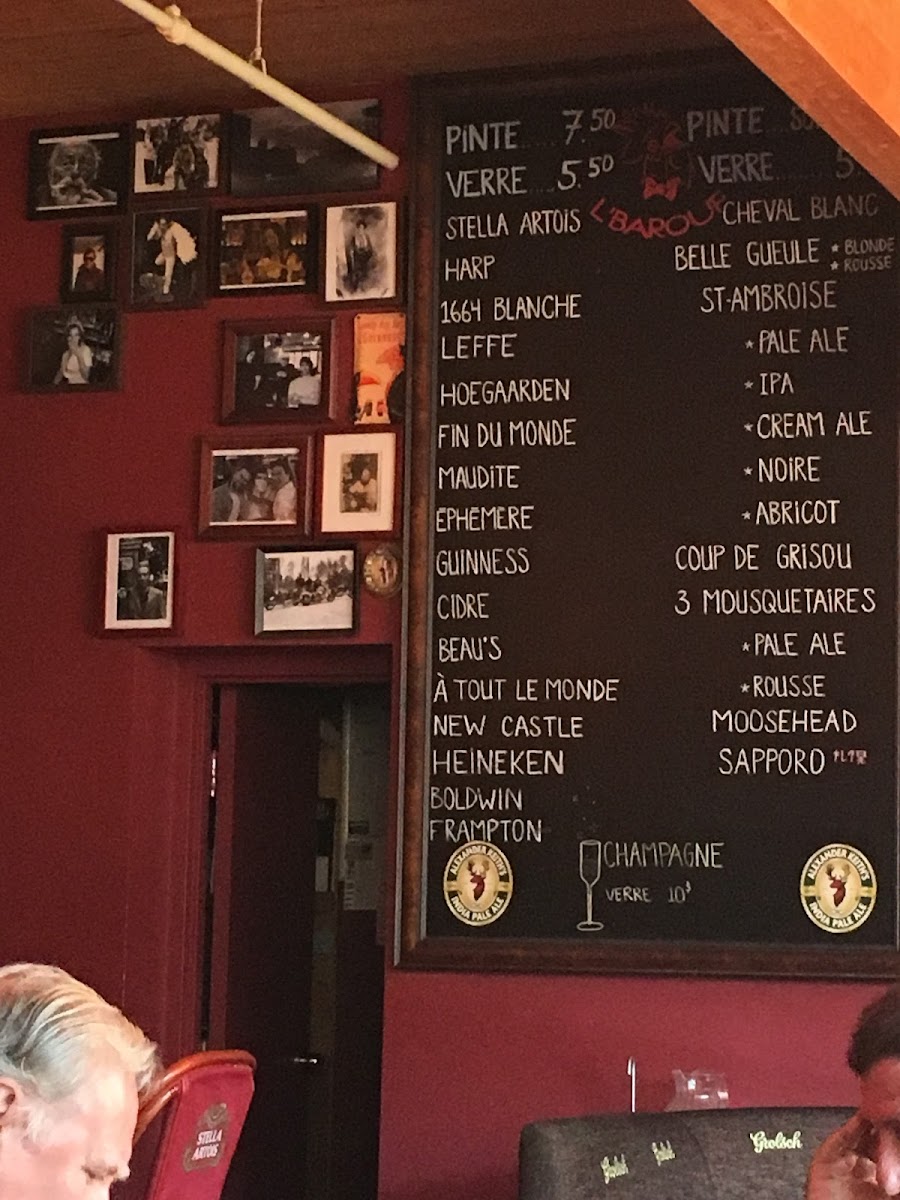 PINTE..... 7.50
VERRE.... 5.50
STELLA ARTOIS
HARP
1664 BLANCHE
LEFFE
HOEGAARDEN
FIN DU MONDE
MAUDITE
ÉPHÉMÈRE
GUINNESS
CIDRE
BEAU'S
À TOUT LE MONDE
NEW CASTLE
HEINEKEN
BOLDWIN
FRAMPTON
L'BAROUF
PINTE...
VERRE.... 5
CHEVAL BLANC
BELLE GUEULE * BLONDE
* ROUSSE
ST-AMBROISE
* PALE ALE
* IPA
* CREAM ALE
* NOIRE
* ABRICOT
COUP DE GRISOU
3 MOUSQUETAIRES
* PALE ALE
* ROUSSE
MOOSEHEAD
SAPPORO
CHAMPAGNE
VERRE 10$
ALEXANDER KEITH'S
INDIA PALE ALE
ALEXANDER KEITH'S
INDIA PALE ALE
STELLA
ARTOIS
Grolsch